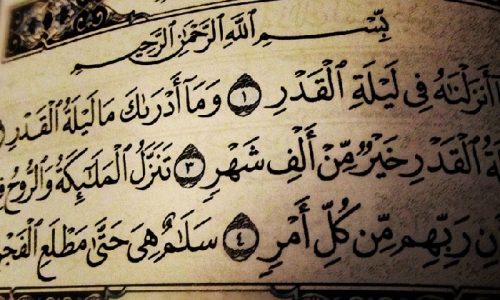 بِسْمِ ٱللَّهِ ٱلرَّحْمَٰنِ ٱلرَّحِيمِ
أَنزَلْنَٰهُ فِى لَيْلَةِ ٱلْقَدْرِ ١ وَمَآ أَدْرَىٰكَ مَا لَيْلَةُ ٱلْقَدْرِ
ٱلْقَدْرِ خَيْرٌ مِّنْ أَلْفِ شَهْرٍ ٣ تَنَزَّلُ ٱلْمَلَٰٓئِكَةُ وَٱلرُّوحُ
رَبِّهِم مِّن كُلِّ أَمْرٍ ٤ سَلَٰمٌ هِىَ حَتَّىٰ مَطْلَعِ ٱلْفَجْرِ